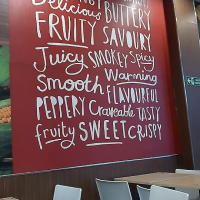 Delicious BUTTERY
FRUITY SAVOURY
Juicy SMOKEY Spicy
Smooth Warming
FLAVOURFUL
PEPPERY Craveable TASTY
fruity SWEET CRISPY